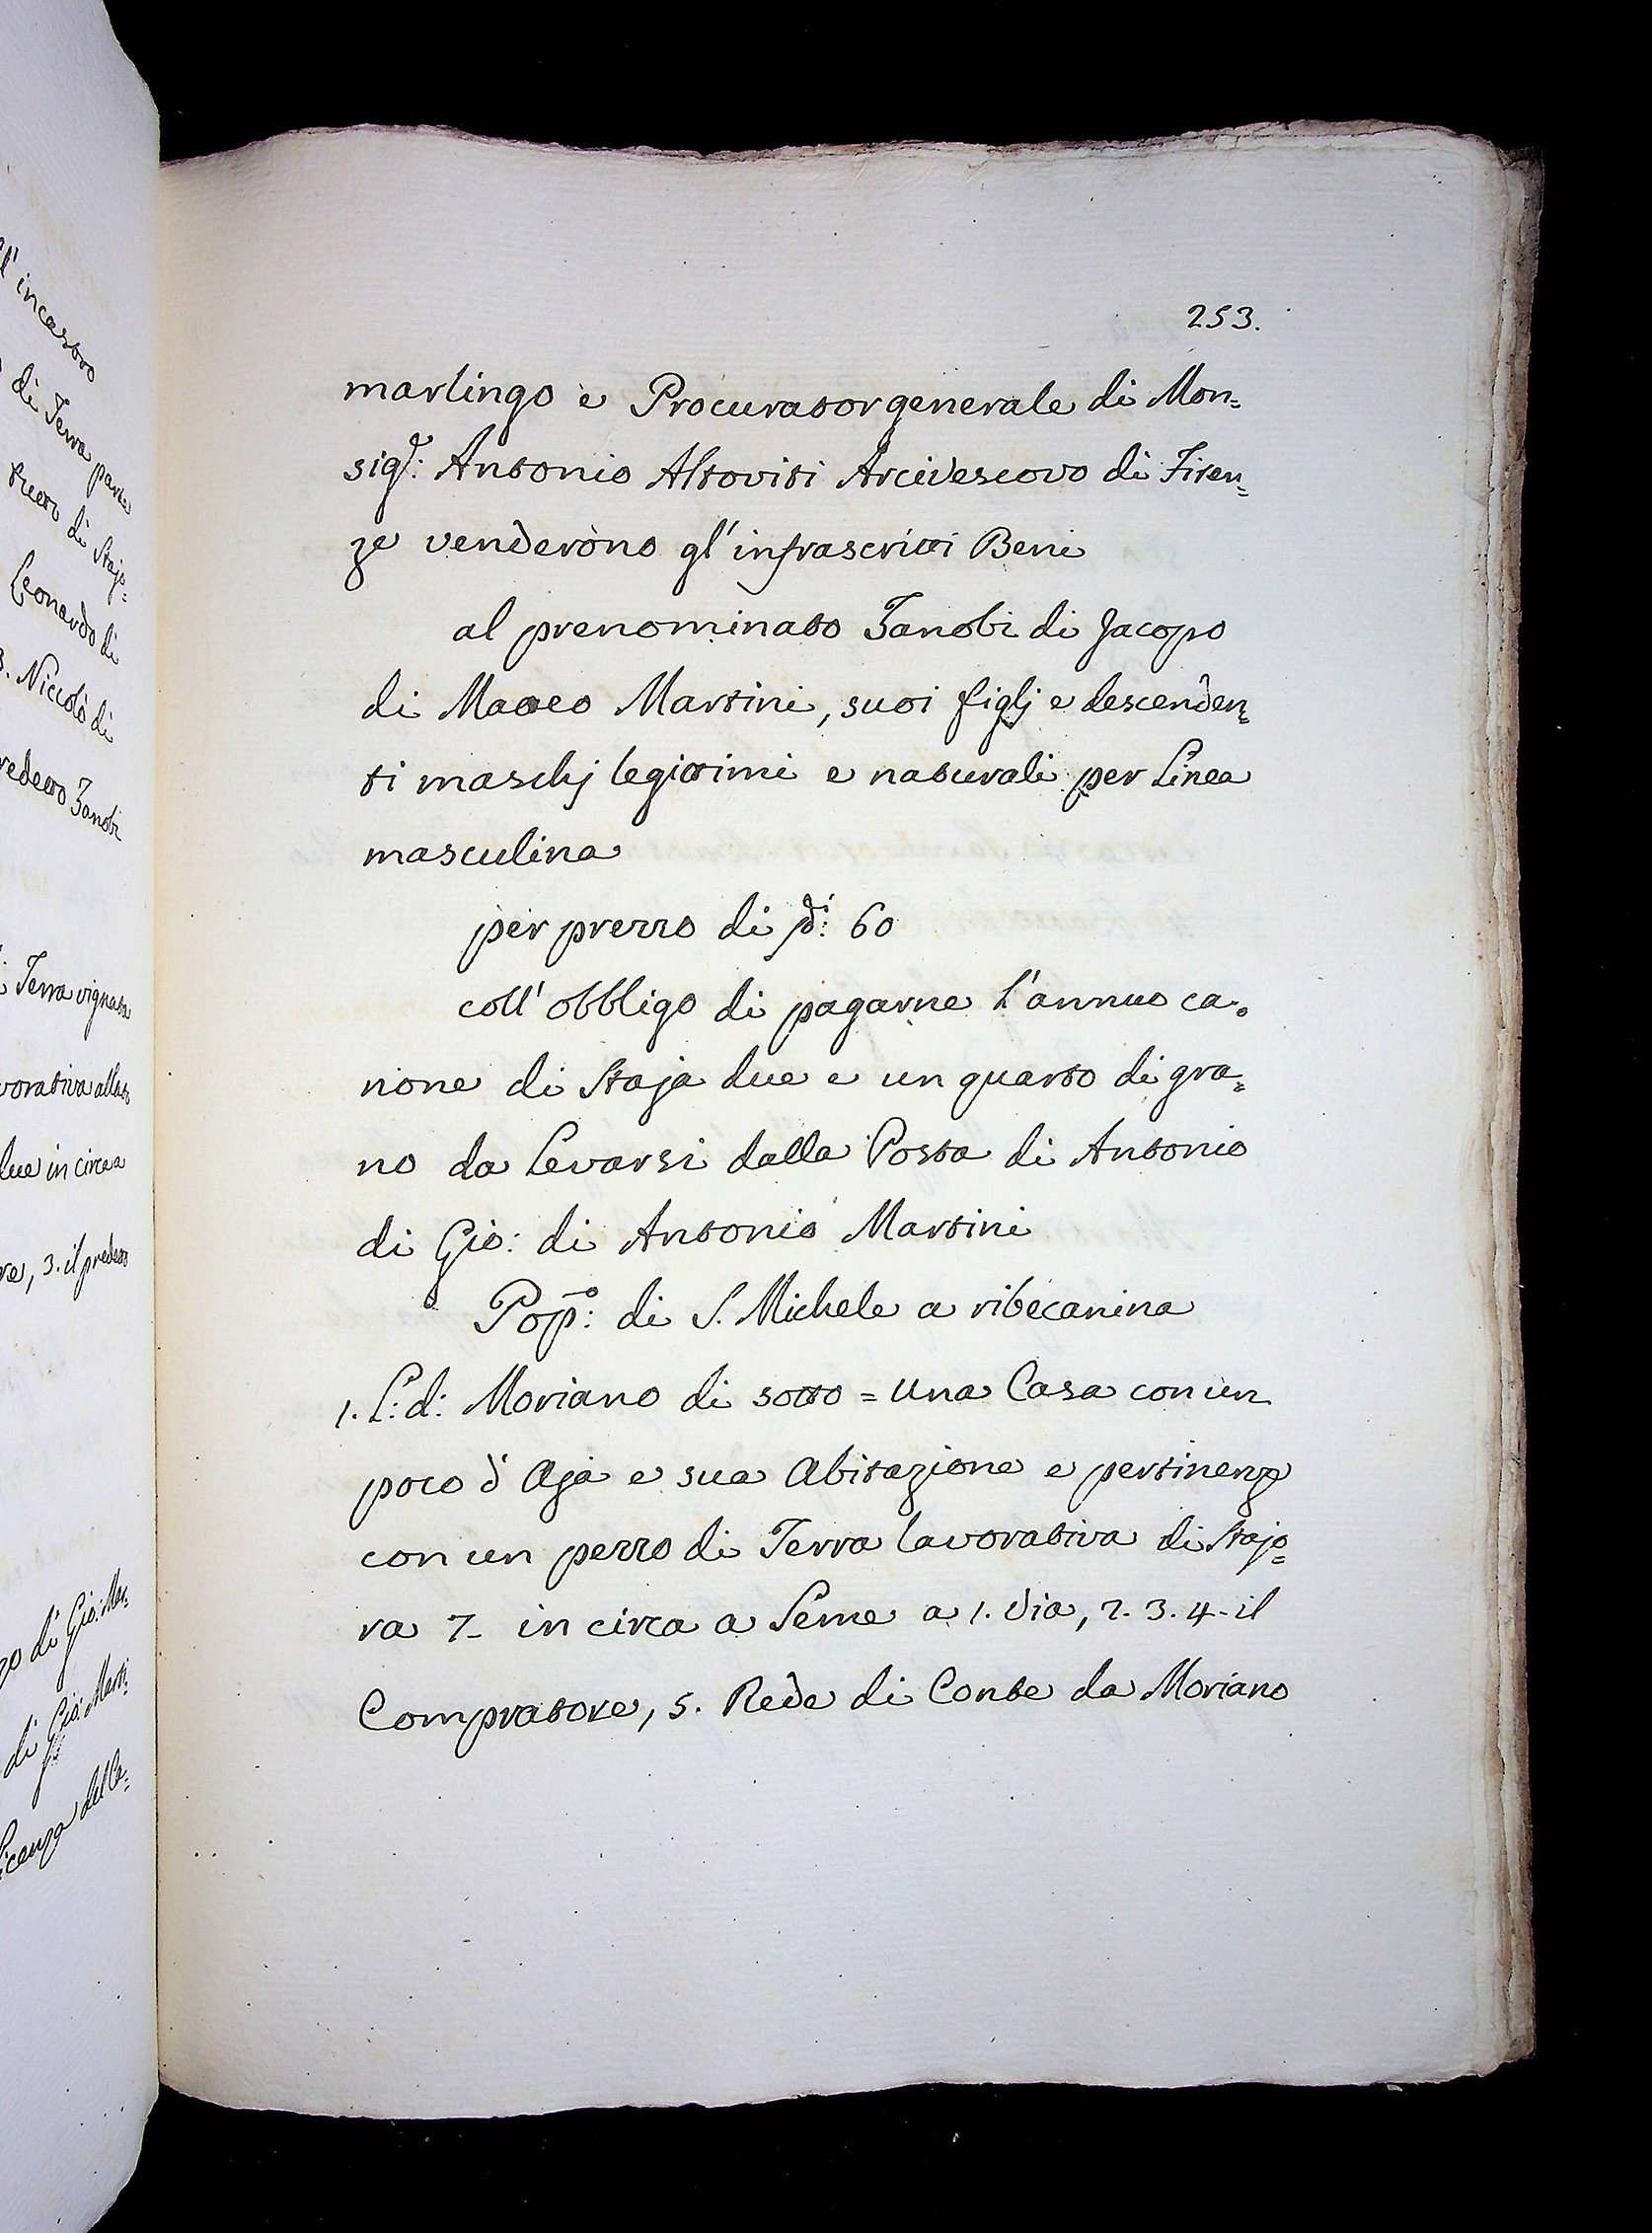 l'incastro
di Terra parte
di Stajo=
Leonardo di
3. Niccolò di
predetto Zanobi
Terra vignata
vorativa allato
due in circa a
re, 3. il predetto
di Gio: Mar=
di Gio: Marti=
licenza del Ca=
253.
marlingo e Procurator generale di Mon=
sig.r: Antonio Altoviti Arcivescovo di Firen=
ze venderono gl'infrascritti Beni
al prenominato Zanobi di Jacopo
di Matteo Martini, suoi figlj e descenden=
ti maschj legittimi e naturali per Linea
masculina
per prezzo di 60
coll'obbligo di pagarne l'annuo ca=
none di Staja due e un quarto di gra=
no da Levarsi dalla Posta di Antonio
di Gio: di Antonio Martini
Pop.o: di S. Michele a ribecanina
1. L: d: Moriano di sotto = Una Casa con un
poco d'Aja e sua Abitazione e pertinenze
con un pezzo di Terra lavorativa di Stajo=
ra 7- in circa a Seme a 1. Via, 2. 3. 4. il
Compratore, 5. Rede di Conte da Moriano